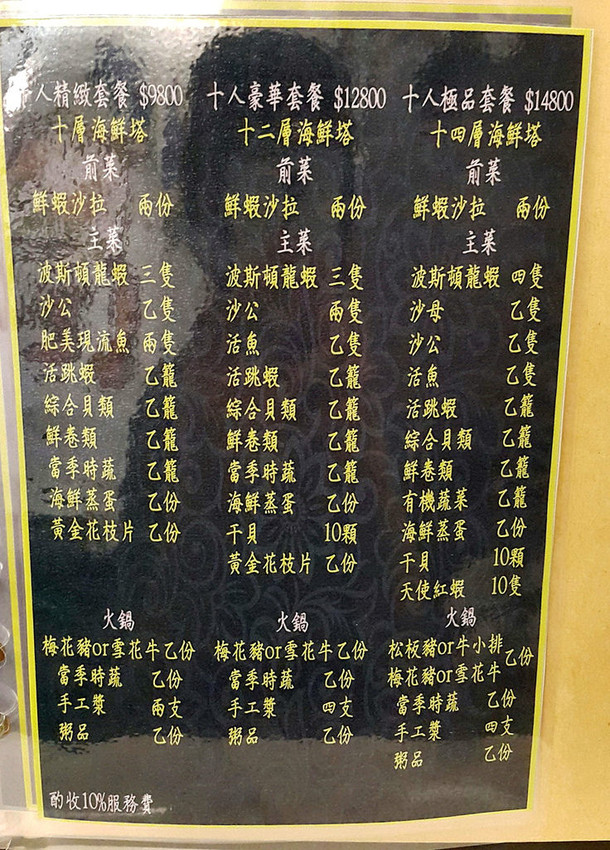 十人精緻套餐 $9800
十層海鮮塔
前菜
鮮蝦沙拉 兩份
主菜
波斯頓龍蝦 三隻
沙公 乙隻
肥美現流魚 兩隻
活跳蝦 乙籠
綜合貝類 乙籠
鮮卷類 乙籠
當季時蔬 乙籠
海鮮蒸蛋 乙份
黃金花枝片 乙份
火鍋
梅花豬or雪花牛 乙份
當季時蔬 乙份
手工漿 兩支
粥品 乙份
酌收10%服務費
十人豪華套餐 $12800
十二層海鮮塔
前菜
鮮蝦沙拉 兩份
主菜
波斯頓龍蝦 三隻
沙公 兩隻
活魚 乙隻
活跳蝦 乙籠
綜合貝類 乙籠
鮮卷類 乙籠
當季時蔬 乙籠
海鮮蒸蛋 乙份
干貝 10顆
黃金花枝片 乙份
火鍋
梅花豬or雪花牛 乙份
當季時蔬 乙份
手工漿 四支
粥品 乙份
十人極品套餐 $14800
十四層海鮮塔
前菜
鮮蝦沙拉 兩份
主菜
波斯頓龍蝦 四隻
沙母 乙隻
沙公 乙隻
活魚 乙隻
活跳蝦 乙籠
綜合貝類 乙籠
鮮卷類 乙籠
有機蔬菜 乙籠
海鮮蒸蛋 乙份
干貝 10顆
天使紅蝦 10隻
火鍋
松板豬or牛小排 乙份
梅花豬or雪花牛
當季時蔬 乙份
手工漿 四支
粥品 乙份